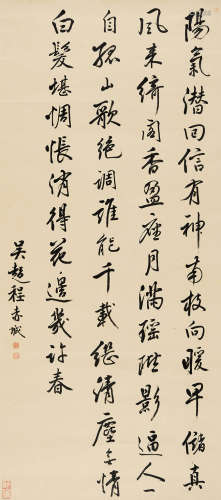 陽氣潛回信有神南枝向暖早傳真
風來綺閣香盈座月滿瑤階影逼人一
自孤山歌絕調誰能千載繼清塵多情
白髮堪惆悵消得花邊幾許春
吳趨程本威